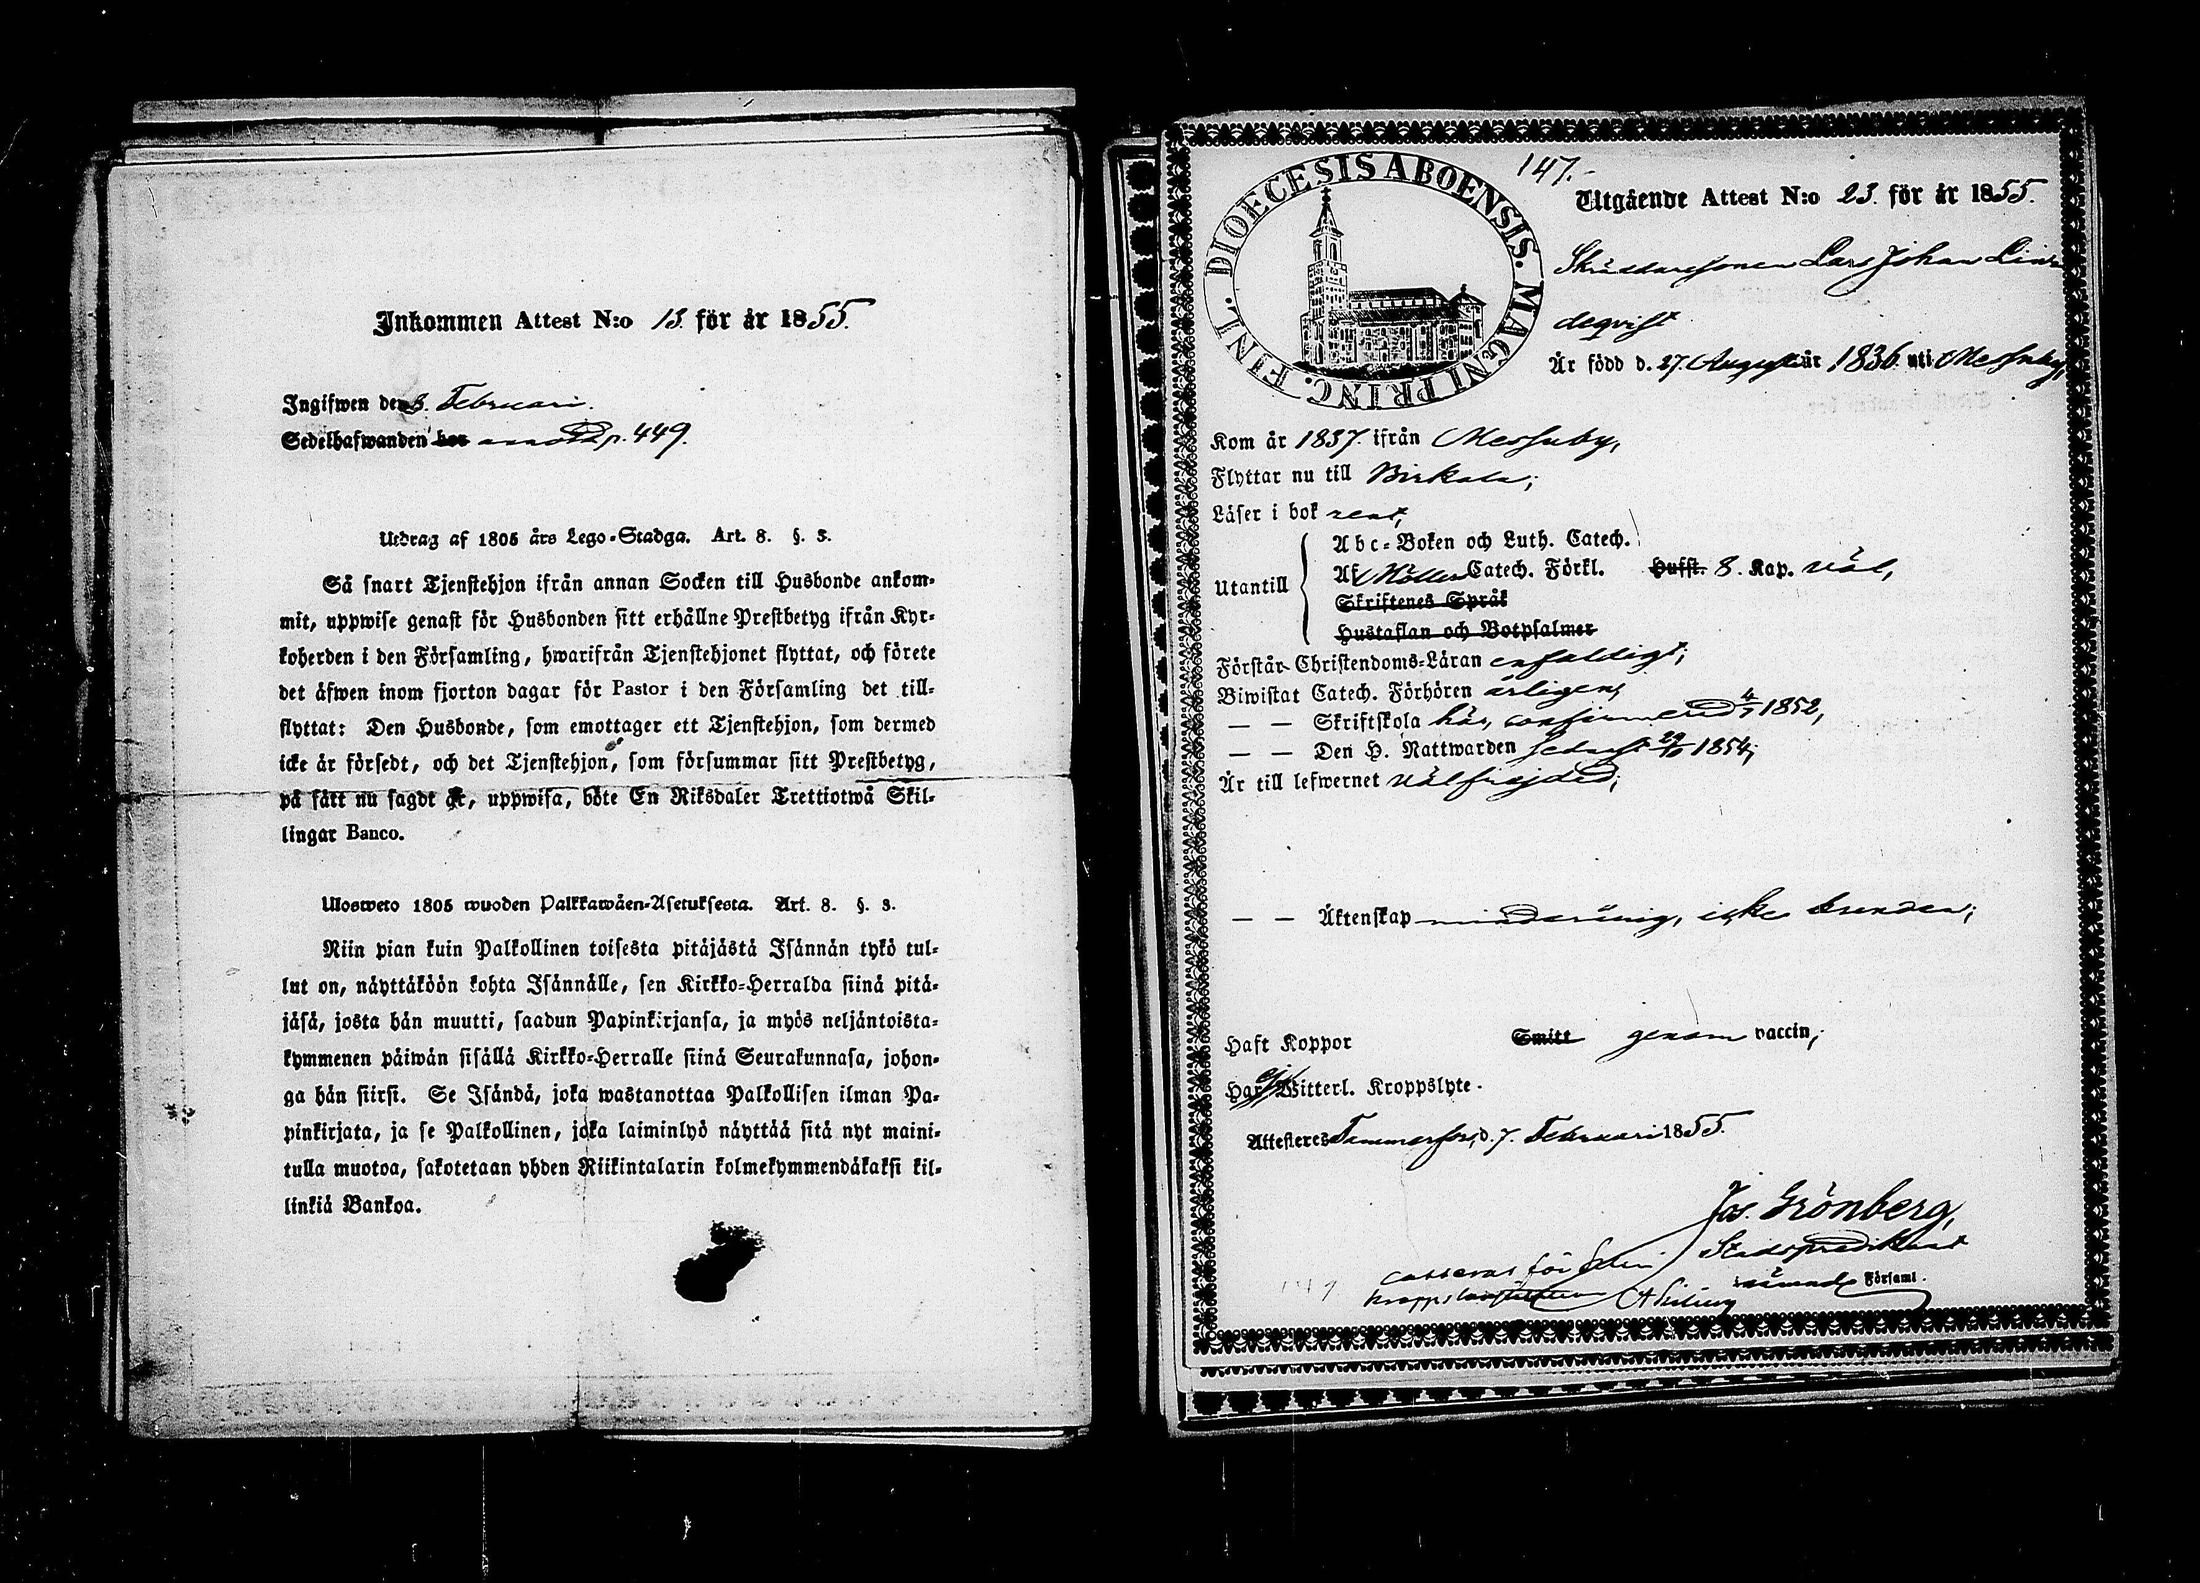 Inkommen Attest N:o 13. för år 1855.
Ingifwen den 8. Februari.
Sedelhafwanden hos p. 449.
Utdrag af 1805 års Lego-Stadga. Art. 8. §. 3.
Så snart Tjenstehjon ifrån annan Socken till Husbonde ankom-
mit, uppwise genast för Husbonden sitt erhållne Prestbetyg ifrån Kyr-
koherden i den Församling, hwarifrån Tjenstehjonet flyttat, och förete
det äfwen inom fjorton dagar för Pastor i den Församling det till-
flyttat: Den Husbonde, som emottager ett Tjenstehjon, som dermed
icke är försedt, och det Tjenstehjon, som försummar sitt Prestbetyg,
på sätt nu sagdt är, uppwisa, böte En Riksdaler Trettiotwå Skil-
lingar Banco.
Ulosweto 1805 wuoden Palkkawäen-Asetuksesta. Art. 8. §. 3.
Niin pian kuin Palkollinen toisesta pitäjästä Isännän tykö tul-
lut on, näyttäköön kohta Isännälle, sen Kirkko-Herralda siinä pitä-
jäsä, josta hän muutti, saadun Papinkirjansa, ja myös neljäntoista-
kymmenen päiwän sisällä Kirkko-Herralle siinä Seurakunnasa, johon-
ga hän siirsi. Se Isändä, joka wastanottaa Palkollisen ilman Pa-
pinkirjata, ja se Palkollinen, joka laiminlyö näyttää sitä nyt maini-
tulla muotoa, sakotetaan yhden Riikintalarin kolmekymmendäkaksi kil-
linkiä Bankoa.
147.
DIOECESIS ABOENSIS. MAGNI PRINC. FINL.
Utgående Attest N:o 23. för år 1855.
Skräddaresonen Lars Johan Lin-
deqvist
Är född d. 27. Augusti år 1836. uti Messuby,
Kom år 1837. ifrån Messuby,
Flyttar nu till Birkala;
Läser i bok rent,
Utantill
Abc-Boken och Luth. Catech.
Af Möllers Catech. Förkl. Hufst. 8. Kap. väl,
Skriftenes Språk
Hustaflan och Botpsalmer
Förstår Christendoms-Läran enfaldigt;
Biwistat Catech. Förhören årligen,
— — Skriftskola här, confirmerad 4/7 1852,
— — Den H. Nattwarden sedast 29/10 1854;
Är till lefwernet välfrejdad;
— — Äktenskap minderårig, icke
Haft Koppor Smitt genom vaccin;
Har ej Witterl. Kroppslyte.
Attesteres Tammerfors, d. 7. Februari 1855.
Jos. Grönberg,
Stadspredikant
Församl.